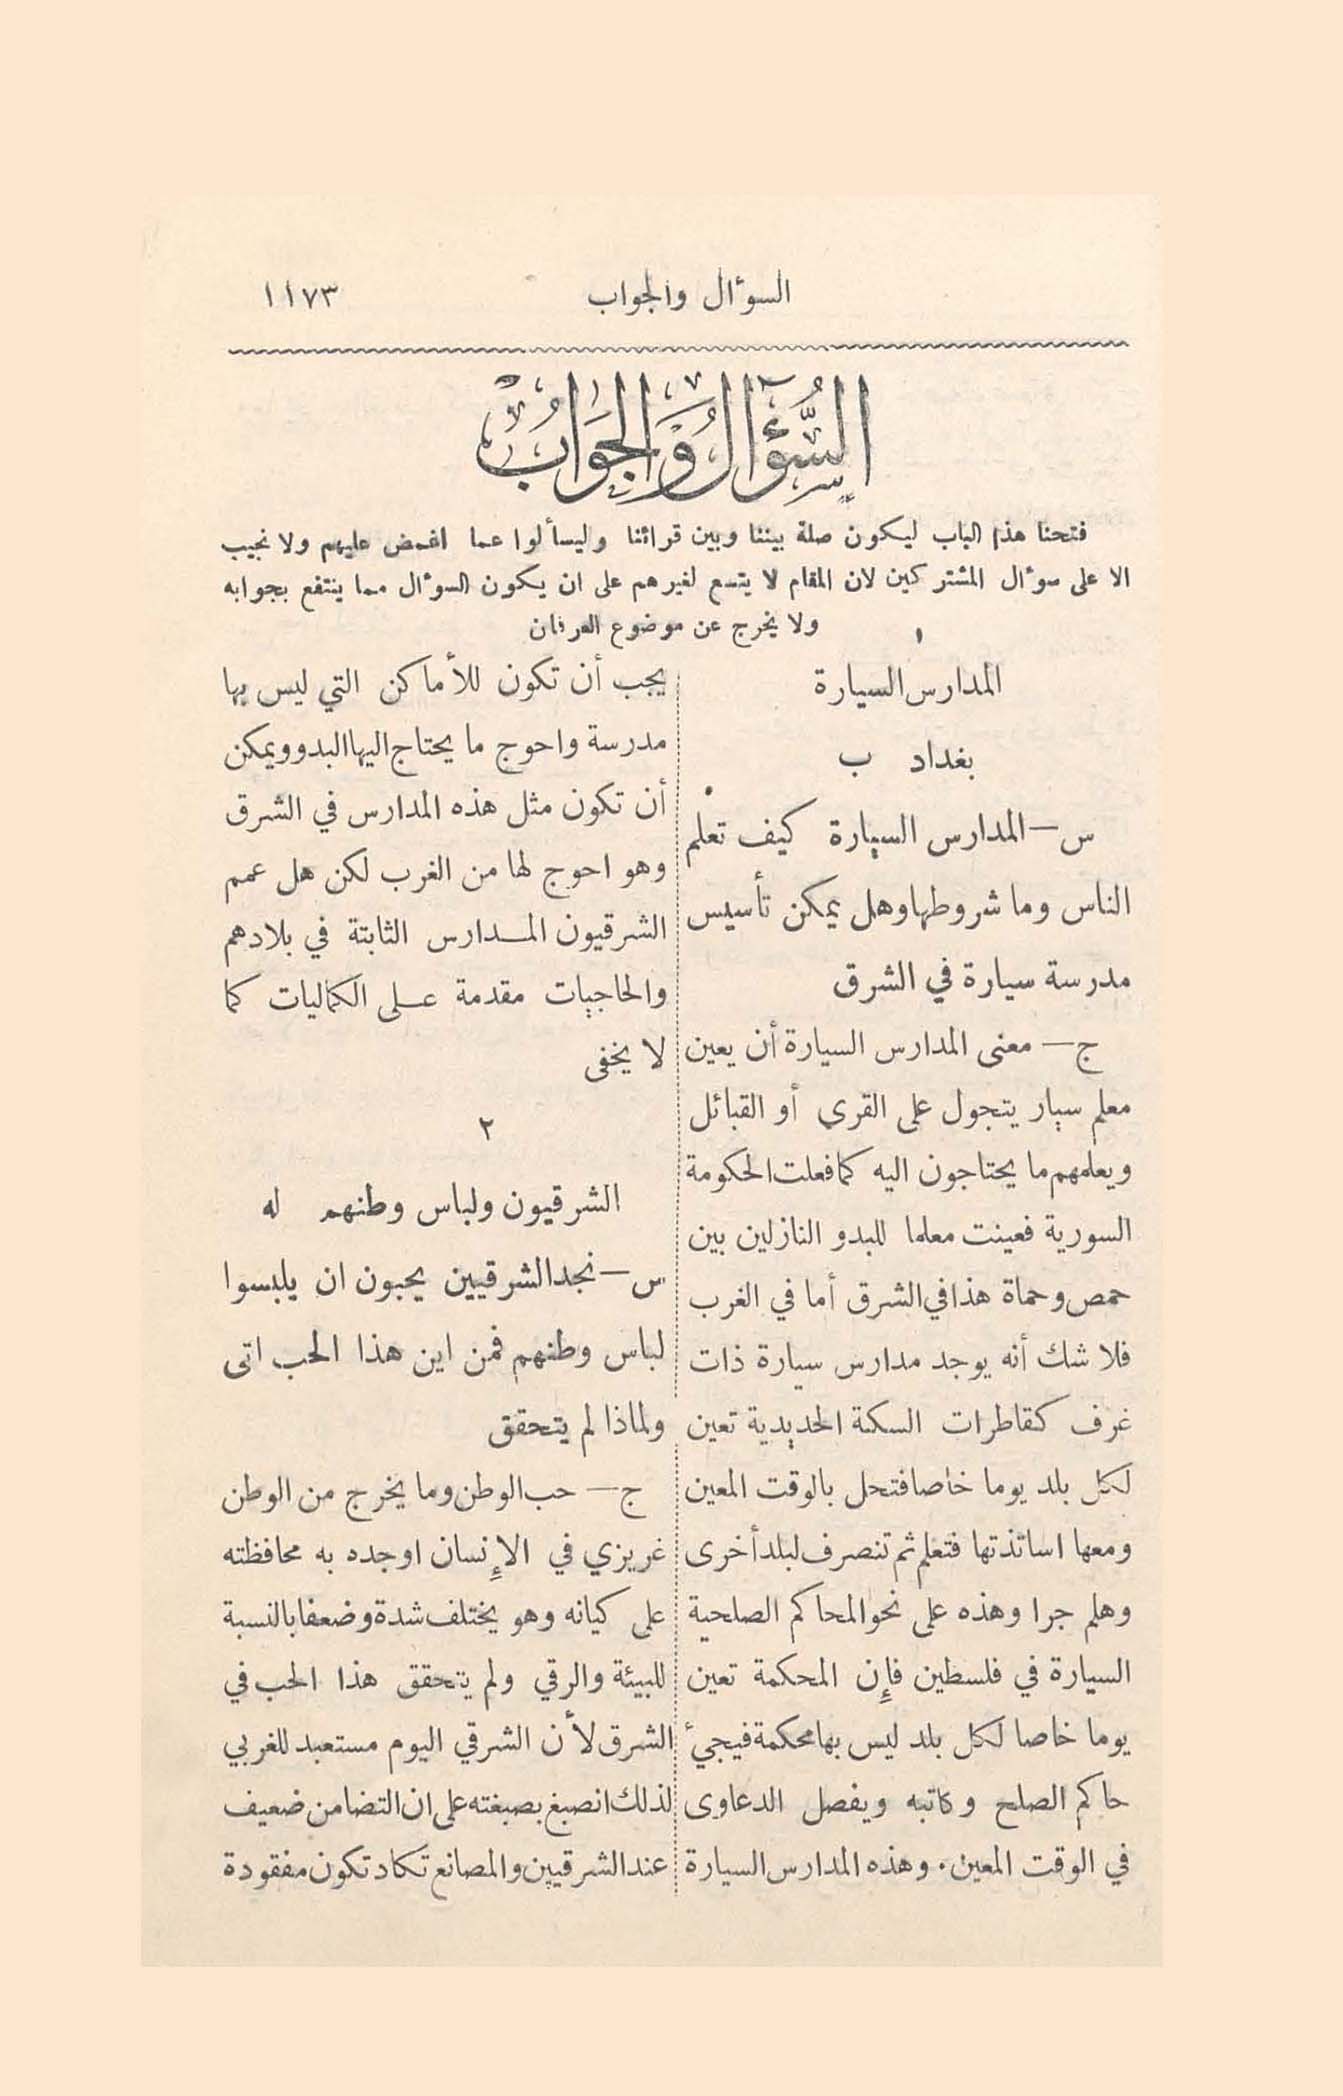 السوٴال والجواب
١١٧٣
السُّؤَالُ وَالجَوَابُ
فتحنا هذا الباب ليكون صلة بيننا وبين قرائنا وليسألوا عما اغمض عليهم ولا نجيب
الا على سوٴال المشتركين لان المقام لا يتسع لغيرهم على ان يكون السوٴال مما ينتفع بجوابه
ولا يخرج عن موضوع العرفان
١
المدارس السيارة
بغداد ب
س — المدارس السيارة كيف تعلم
الناس وما شروطها وهل يمكن تأسيس
مدرسة سيارة في الشرق
ج — معنى المدارس السيارة أن يعين
معلم سيار يتجول على القرى أو القبائل
ويعلمهم ما يحتاجون اليه كما فعلت الحكومة
السورية فعينت معلما للبدو النازلين بين
حمص وحماة هذا في الشرق أما في الغرب
فلا شك أنه يوجد مدارس سيارة ذات
غرف كقاطرات السكة الحديدية تعين
لكل بلد يوما خاصا فتحل بالوقت المعين
ومعها اساتذتها فتعلم ثم تنصرف لبلد أخرى
وهلم جرا وهذه على نحو المحاكم الصلحية
السيارة في فلسطين فإن المحكمة تعين
يوما خاصا لكل بلد ليس بها محكمة فيجيٴ
حاكم الصلح وكاتبه ويفصل الدعاوى
في الوقت المعين . وهذه المدارس السيارة
يجب أن تكون للأماكن التي ليس بها
مدرسة واحوج ما يحتاج اليها البدو ويمكن
أن تكون مثل هذه المدارس في الشرق
وهو احوج لها من الغرب لكن هل عمم
الشرقيون المدارس الثابتة في بلادهم
والحاجيات مقدمة على الكماليات كما
لا يخفى
٢
الشرقيون ولباس وطنهم له
س — نجد الشرقيين يحبون ان يلبسوا
لباس وطنهم فمن اين هذا الحب اتى
ولماذا لم يتحقق
ج — حب الوطن وما يخرج من الوطن
غريزي في الإنسان اوجده به محافظته
على كيانه وهو يختلف شدة وضعفا بالنسبة
للبيئة والرقي ولم يتحقق هذا الحب في
الشرق لأن الشرقي اليوم مستعبد للغربي
لذلك انصبغ بصبغته على ان التضامن ضعيف
عند الشرقيين والمصانع تكاد تكون مفقودة